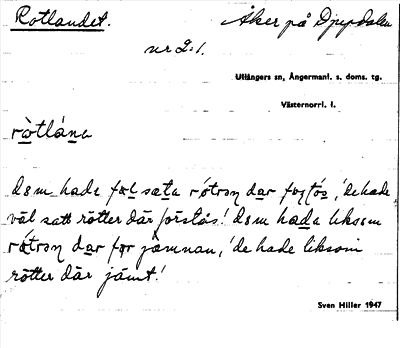 Rotlandet. Åker på Djupdalen
nr 2:1.
Ullångers sn, Ångermanl. s. doms. tg.
Västernorrl. l.
ròtlána
dɜm hada fɷl sæta rótrɜn dar foʂtós, 'de hade
väl satt rötter där förstås! dɜm hada liksɜm
rótrɜn dar fɷr jàmnan, 'de hade liksom
rötter där jämt!
Sven Hiller 1947